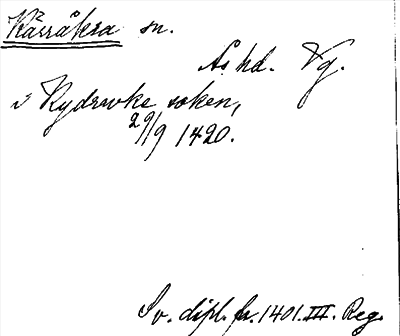 Kärråkra sn.
Ås hd. Vg.
i Kydrævke soken,
29/9 1420.
Sv. dipl. fr. 1401. III. Reg.